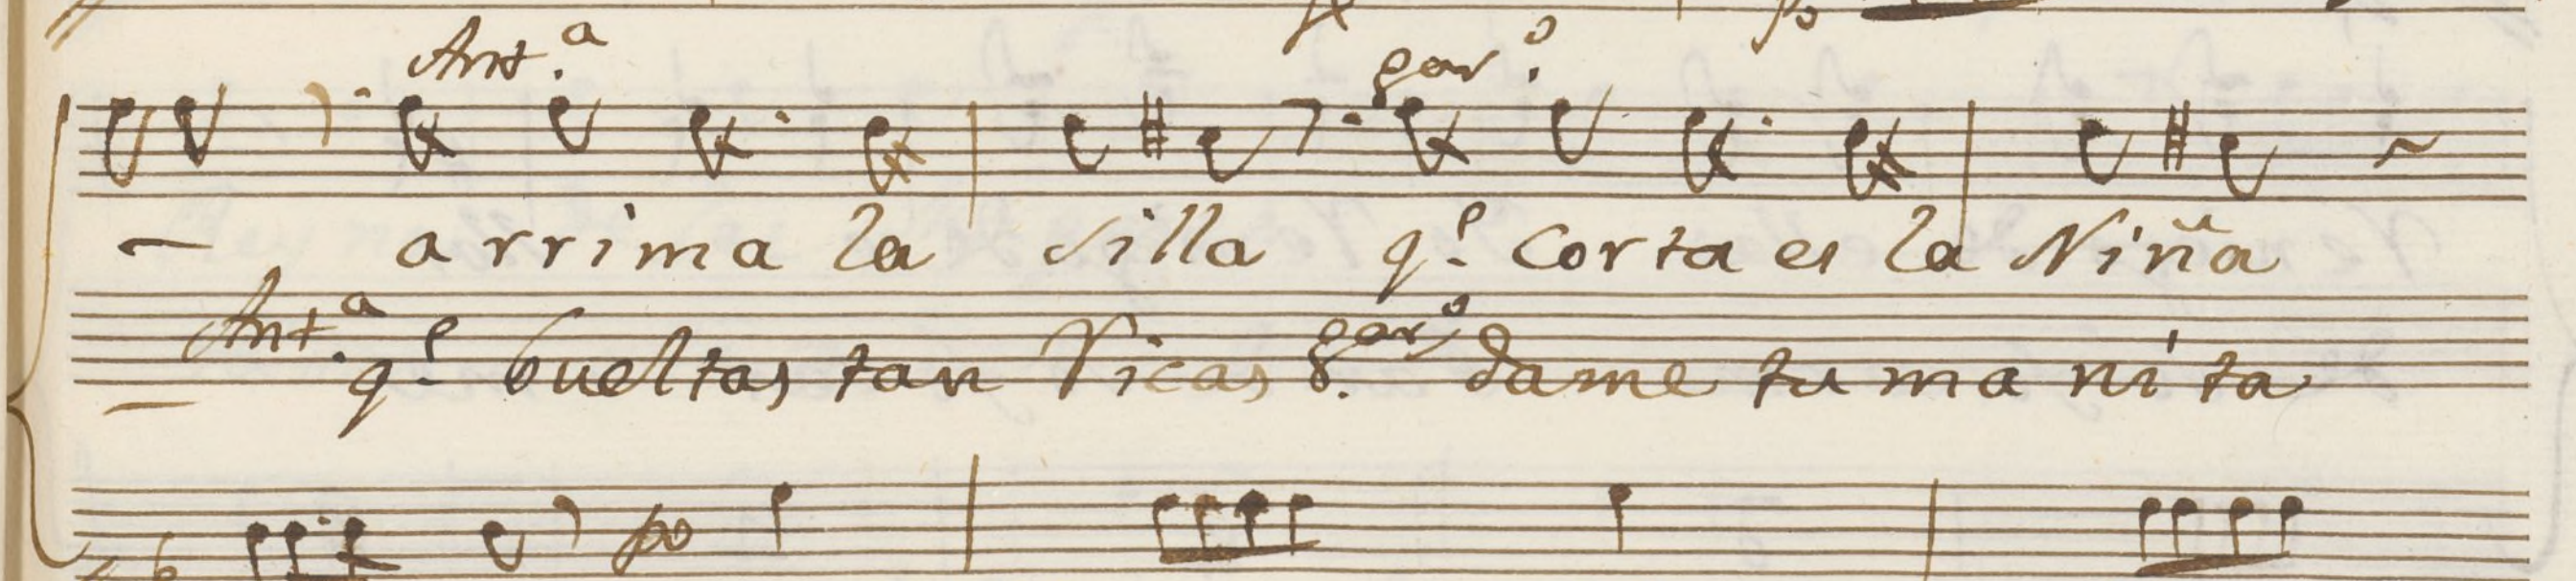 Ant.ª gar.º
arrima la silla q.e corta es la Niña
Ant.ª gar.º
q.e bueltas tan Ricas dame tu manita
po